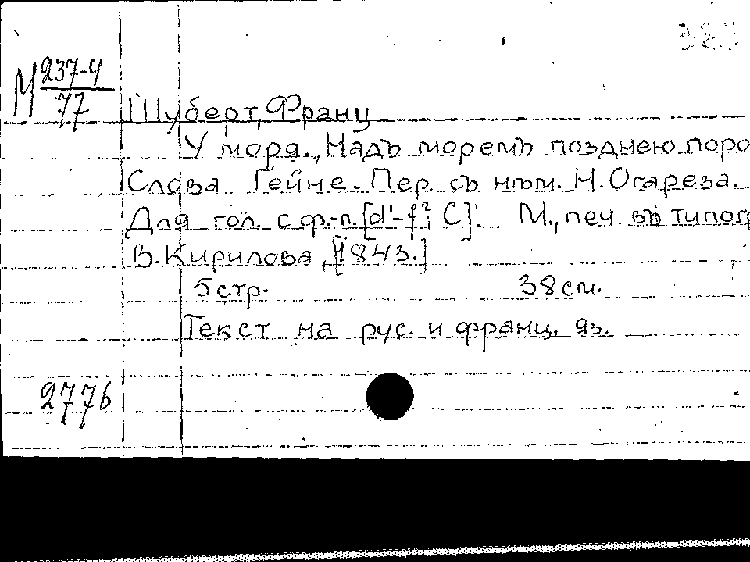 М 237-4
77
Шуберт, Франц
У моря. „Надъ моремъ позднею поро
Слова Гейне. Пер. съ нѣм. Н. Огарева.
Для гол. с ф.-п. [d'-f²; C]. М., печ. въ типог
В. Кирилова, [1843.]
5 стр. 38 см.
Текст на рус. и франц. яз.
2776